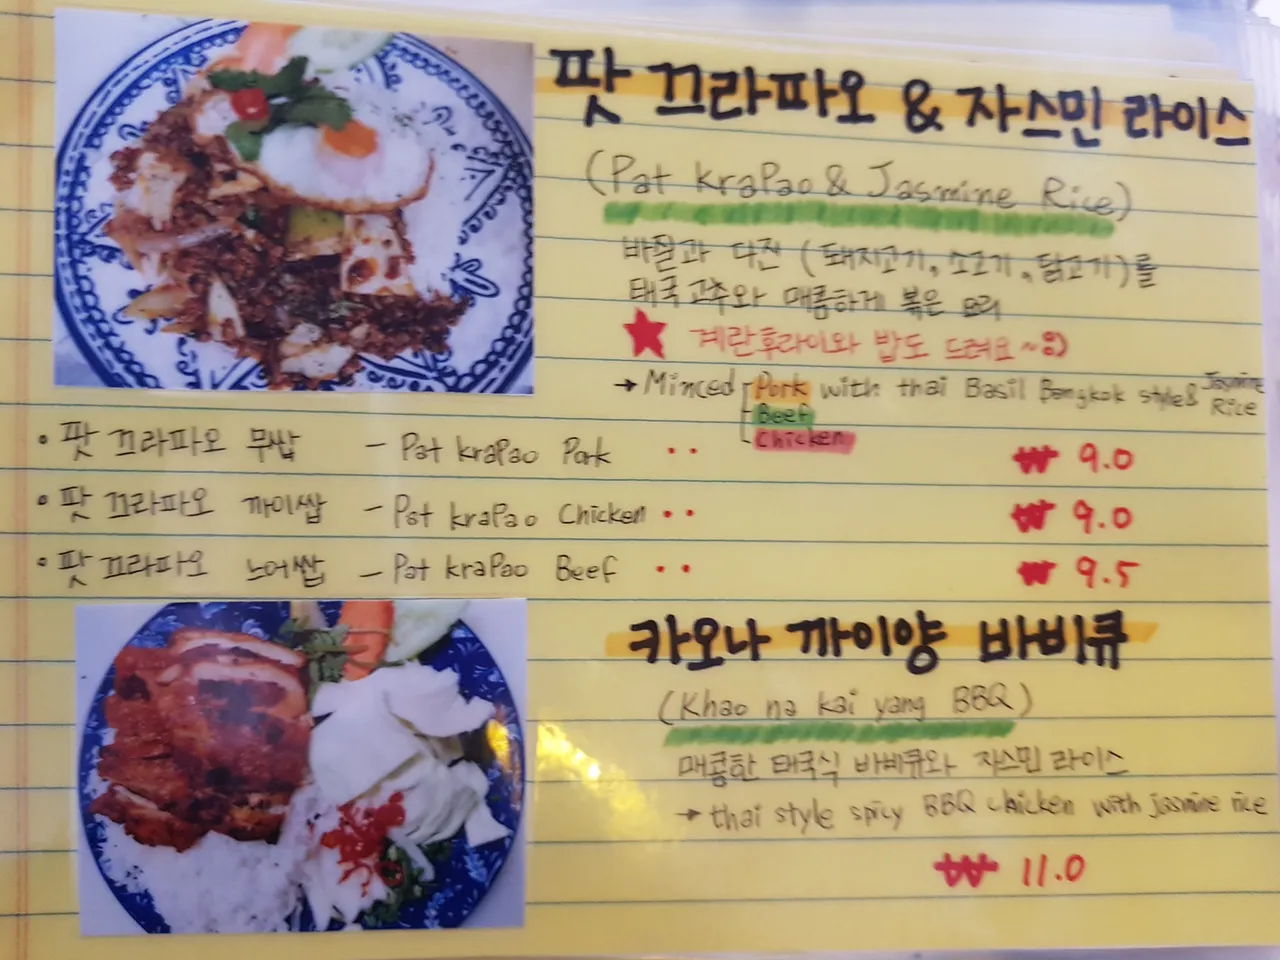 팟 끄라파오 & 자스민 라이스
(Pat kraPao & Jasmine Rice)
바질과 다진 (돼지고기, 소고기, 닭고기)를
태국고추와 매콤하게 볶은 요리
★ 계란후라이와 밥도 드려요~:)
→ Minced Pork with thai Basil Bangkok style & Jasmine Rice
Beef
Chicken
• 팟 끄라파오 무쌉 – Pat kraPao Pork ·· ₩ 9.0
• 팟 끄라파오 까이쌉 – Pat kraPao Chicken ·· ₩ 9.0
• 팟 끄라파오 느어쌉 – Pat kraPao Beef ·· ₩ 9.5
카오나 까이양 바비큐
(Khao na kai yang BBQ)
매콤한 태국식 바비큐와 자스민 라이스
→ thai style spicy BBQ chicken with jasmine rice
₩ 11.0